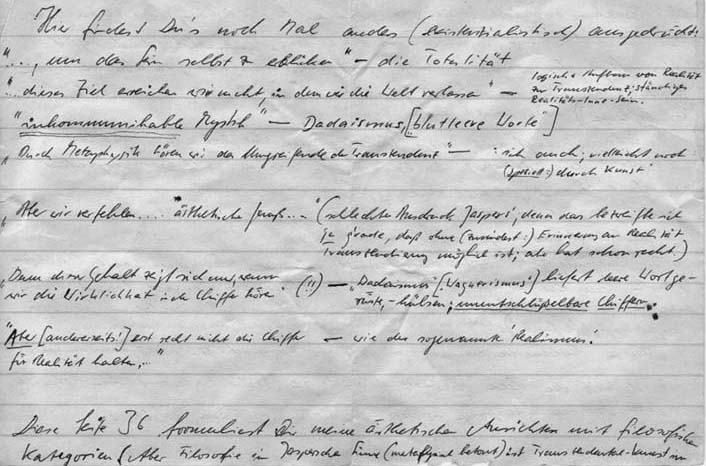 Hier findest Du's noch Mal anders (existentialistisch) ausgedrückt:
"..., um das Sein selbst zu erblicken" – die Totalität
"... dieses Ziel erreichen wir nicht, in dem wir die Welt verlassen" –
logische Aufbau von Realität
zur Transzendenz; ständiges
Realitäts-Inne-Sein.
"inkommunikable Mystik" – Dadaismus, ["blutleere Worte"]
"Durch Metaphysik hören wir das Umgreifende der Transzendenz" – : sich auch; vielleicht noch
(speziell:) durch Kunst
"Aber wir verfehlen .... ästhetische ... " (schlechter Ausdruck Jaspers', denn das
ja gerade, daß ohne (zumindest:) Erinnerung an Realität
Transzendierung möglich ist; also hat schon recht.)
"Denn dieser Gehalt zeigt sich nur, wenn
wir die Wirklichkeit in der Chiffre hören" (!!) – "Dadaismus" [Wagnerismus!] liefert leere Wortge-
-hülsen; unentschlüsselbare Chiffren.
"Aber [andererseits:] erst recht nicht die Chiffer – wie der sogenannte 'Realismus'.
für Realität halten, ..."
Diese Seite 36 formuliert Dir meine ästhetischen Ansichten mit filosofischen
Kategorien (Aber Filosofie in Jaspersche Sinne (metaphysisch betont) ist